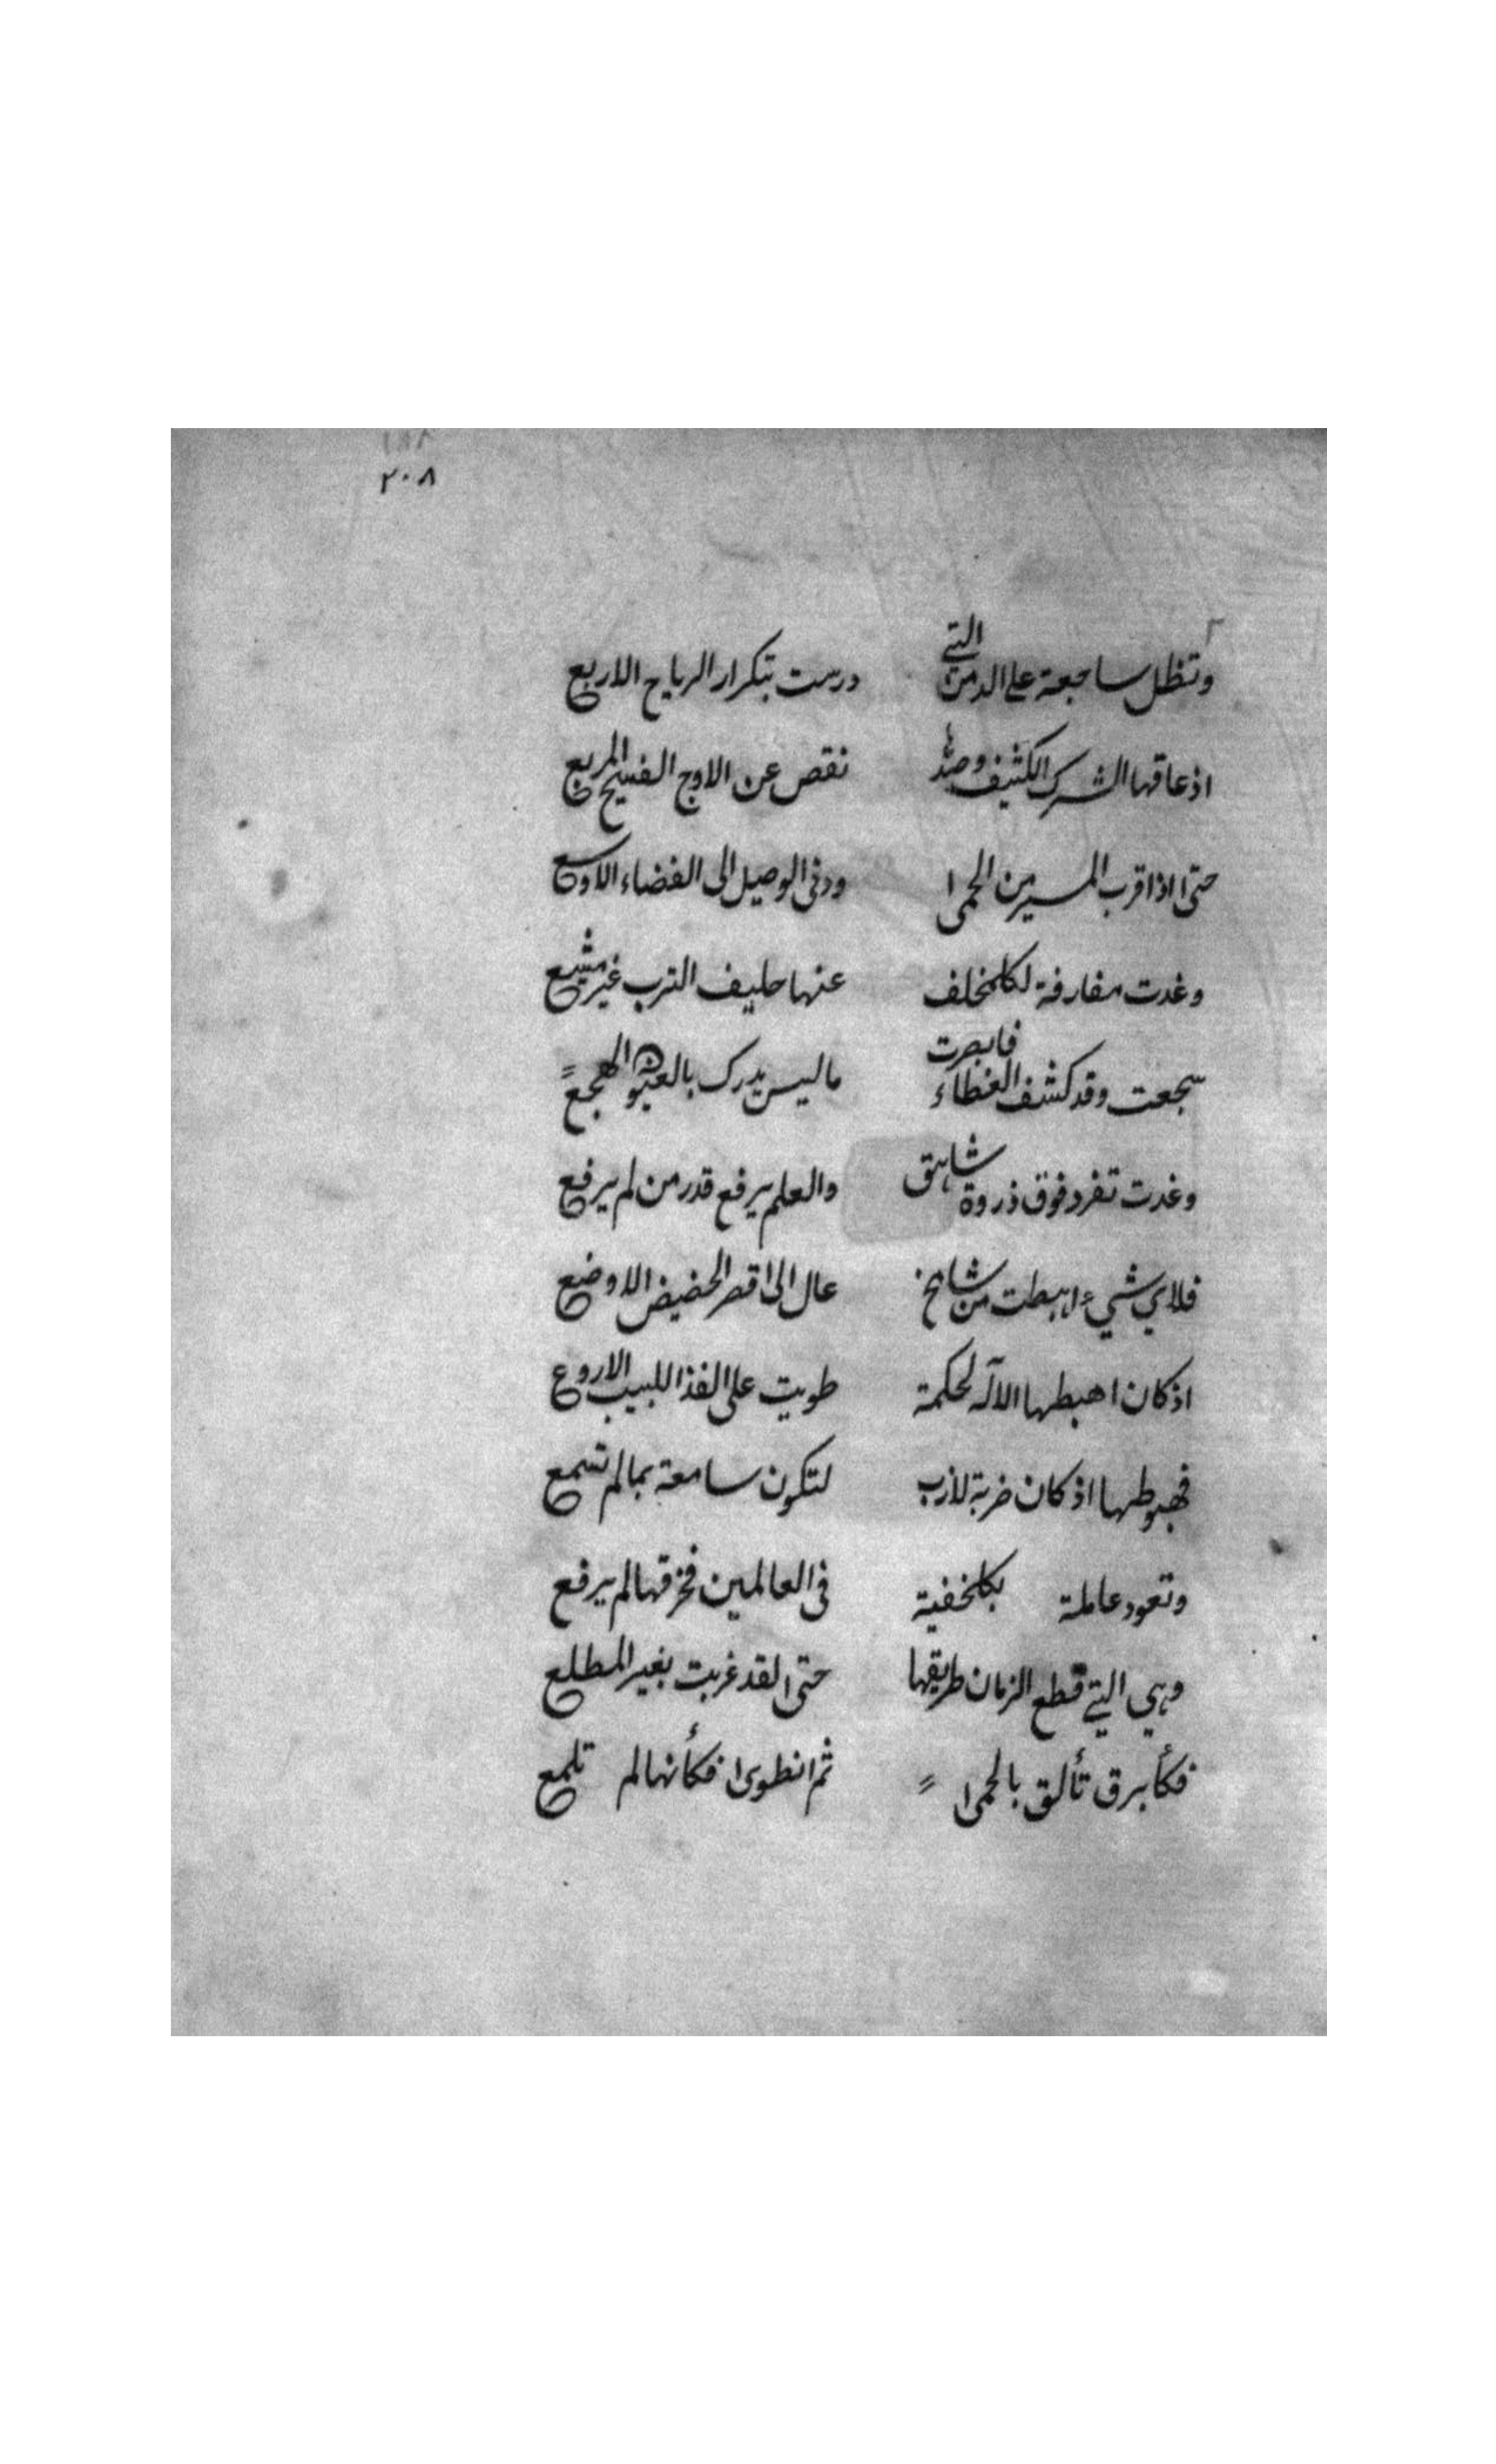 ٢٠٨
وتظل ساجعة على الدمن التي درست بتكرار الرياح الاربع
اذ عاقها الشرك الكثيف وصدّ نقص عن الاوج الفسيح المربع
حتى اذا قرب المسير من الحمى ودنى الوصيل الى الفضاء الاوسع
وغدت مفارقة لكل مخلف عنها حليف الترب غير مشيع
سجعت وقد كشف الغطاء فابصرت ما ليس يدرك بالعيو الهجع
وغدت تغرد فوق ذروة شاهق والعلم يرفع قدر من لم يرفع
فلاي شيء اهبطت من شامخ عال الى اقصر الحضيض الاوضع
اذ كان اهبطها الاله لحكمة طويت على الفذ اللبيب الاروع
فهبوطها اذ كان ضربة لازب لتكون سامعة بما لم تسمع
وتعود عاملة بكل خفية فى العالمين فخرقها لم يرفع
وهي التي قطع الزمان طريقها حتى لقد غربت بغير المطلع
فكأ برق تألق بالحمى ثم انطوى فكأنها لم تلمع